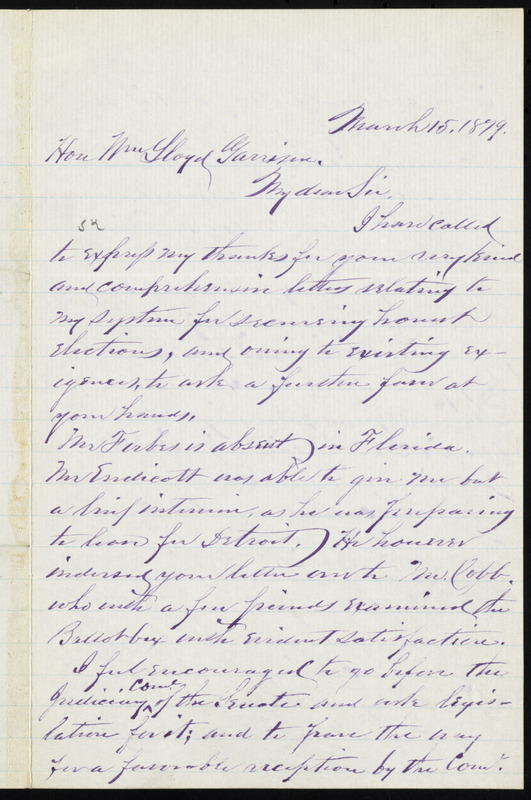 March 15, 1879.
Hon Wm Lloyd Garrison.
My dear Sir,
I have called
to express my thanks for your very kind
and comprehensive letters relating to
my system for securing honest
elections, and owing to existing ex-
igences, to ask a further favor at
your hands.
Mr Forbes is absent in Florida.
Mr Endicott was able to give me but
a brief interview, as he was preparing
to leave for Detroit. He however
indorsed your letter over to Mr. Cobb.
who with a few friends examined the
Ballot box with evident satisfaction.
I feel encouraged to go before the
Judiciary Com. of the Senate and ask legis-
lation for it; and to pave the way
for a favorable reception by the Com.